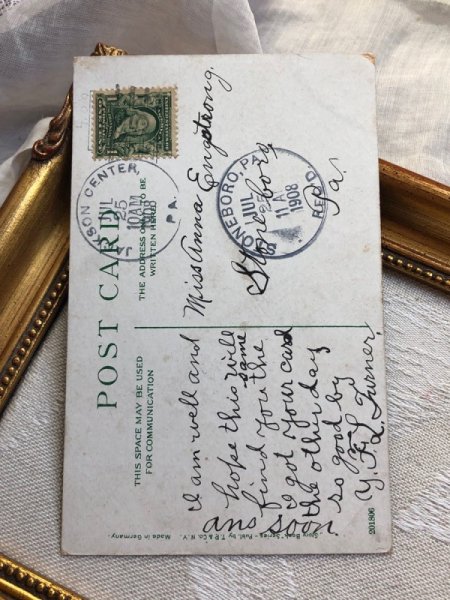 POST CARD
THIS SPACE MAY BE USED
FOR COMMUNICATION
THE ADDRESS ONLY TO BE
WRITTEN HERE
SON CENTER,
JUL
25
10AM
PA.
STONEBORO, PA.
JUL
25
11A
1908
REC'D
Miss Anna Engstrong.
Stoneboro
Pa.
I am well and
hope this will
find you the same
I got your card
the other day
so good by
Y. F. L. Turner.
ans soon
201806
Story Book" Series - Publ. by T.P.& Co. N.Y.
Made in Germany.